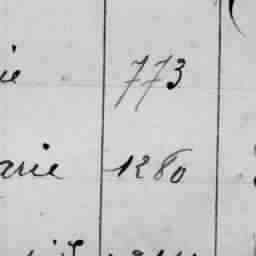 ie 773
arie 1280